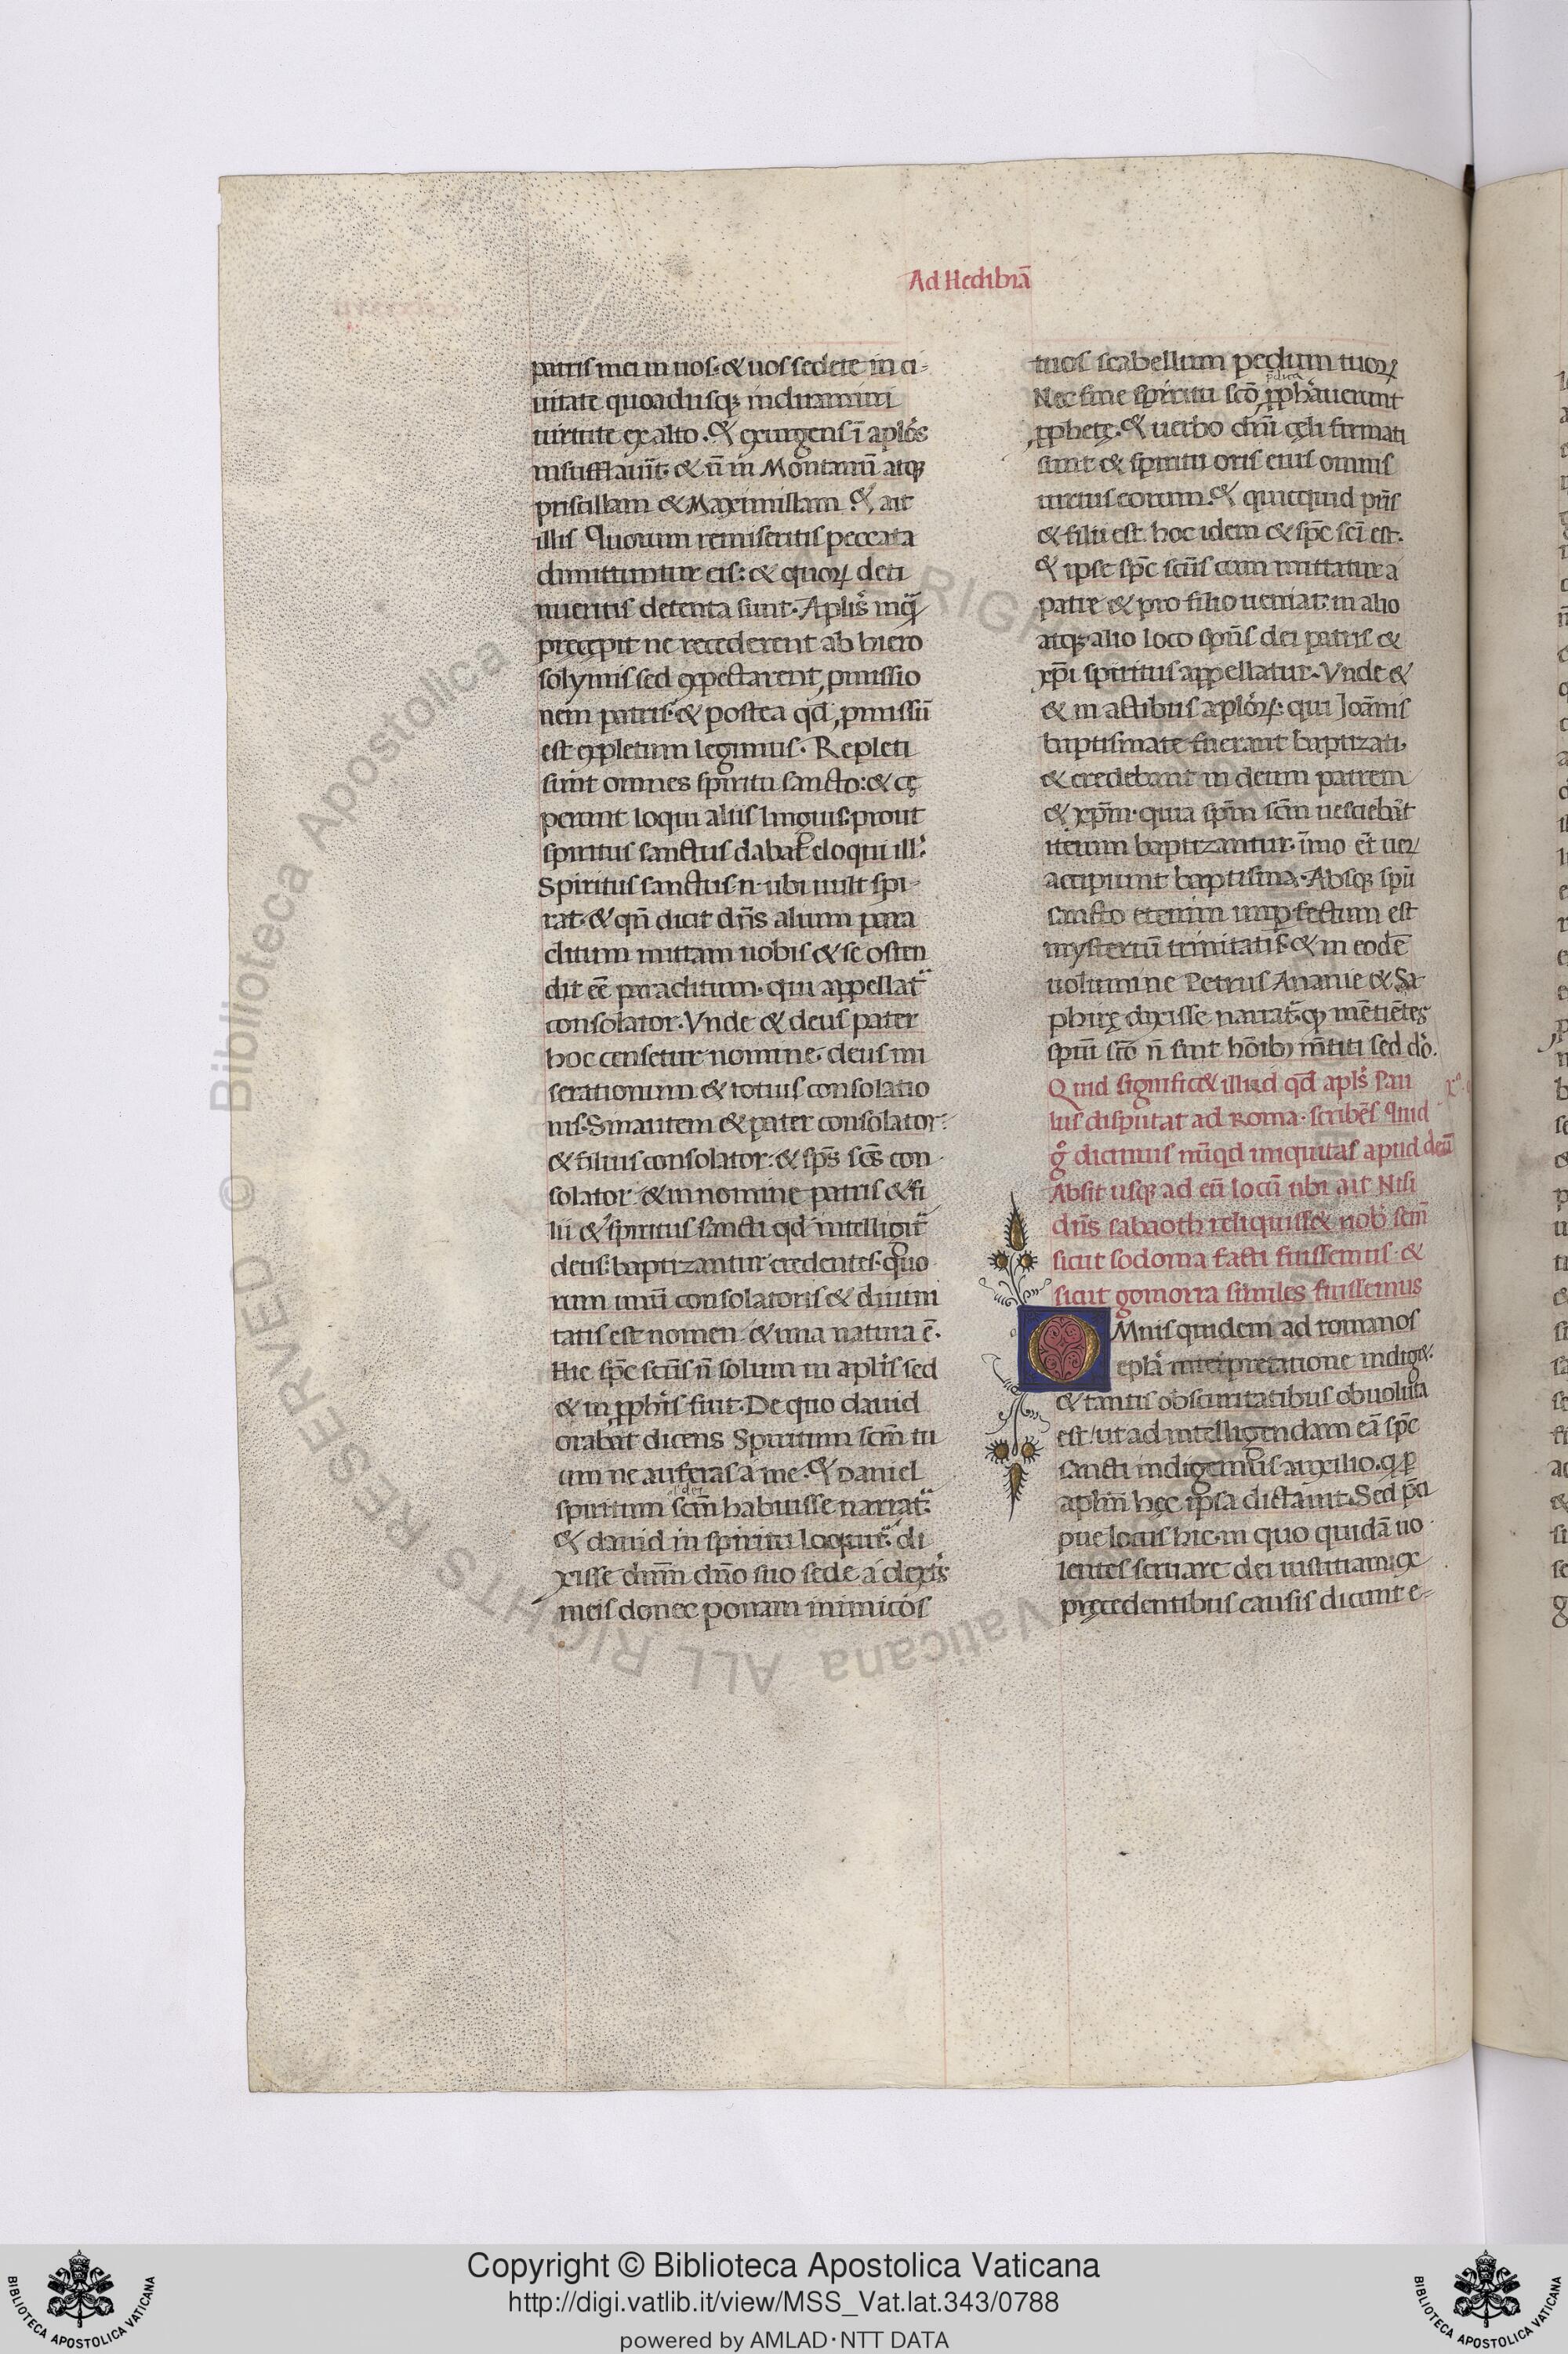 Ad Hedibiā
patris mei in uos. & uos sedete in ci-
uitate quoadusq; induamini
uirtute ex alto. Et exurgens ī aplós
insufflauit. & ñ in Montanū atq;
priscillam & Maximillam. Et ait
illis Quorum remiseritis peccata
dimittuntur eis: & quoꝝ deti
nueritis detenta sunt. Aplis inq̃
pręcepit ne recederent ab hiero
solymis sed expectarent ꝓmissio
nem patris. & postea qd̄ ꝓmissū
est expletum legimus. Repleti
sunt omnes spiritu sancto: & cę
perunt loqui aliis linguis: prout
spiritus sanctus dabat eloqui ill.
Spiritus sanctus .n. ubi uult spi-
rat. & qñ dicit dñs alium para
clitum mittam uobis & se osten
dit eē paraclitum. qui appellat̃
consolator. Vnde & deus pater
hoc censetur nomine. deus mi
serationum & totius consolatio
nis. Sin autem & pater consolator:
& filius consolator: & sp̄s sc̄s con
solator & in nomine patris & fi
lii & spiritus sancti qd̄ intelligit̃
deus: baptizantur credentes. quo
rum unū consolatoris & diuini
tatis est nomen & una natura ē.
Hic sp̄c scūs ñ solum in aplis sed
& in ꝓphis fuit. De quo dauid
orabat dicens Spiritum scm̄ tu
um ne auferas a me. Et Daniel
spiritum scm̄ habuisse narrat̃.
Et dauid in spiritu loquit̃ di
xisse dnm̄ dño suo sede a dexͥs
meis donec ponam inimicos
tuos scabellum pedum tuoꝝ
Nec sine spiritu scō ꝓphauerunt
ꝓphetę. Et uerbo dñi cęli firmati
sunt & spiritu oris eius omnis
uirtus eorum. Et quicquid pr̄is
& filii est. hoc idem & sp̄c sci est.
Et ipse sp̄c scūs cum mittatur a
patre & pro filio ueniat: in alio
atq; alio loco spūs dei patris &
xp̄i spiritus appellatur. Vnde &
& in actibus aplóꝝ. qui Joānis
baptismate fuerant baptizati.
& credebant in deum patrem
& xp̄m. quia spm̄ scm̄ nesciebāt
iterum baptizantur. īmo et̄ ueꝝ
accipiunt baptisma. Absq; spū
sancto etenim imꝑfectum est
mysteriū trinitatis. & in eodē
uolumine Petrus Ananie & Sa-
phirę dixisse narrat̃. ꝙ mētiētes
spiū scō ñ sint hōib; m̄titi sed dō.
Quid significet illud qd̄ apls Pau
lus disputat ad Roma. scribēs Quid
g° dicimus nūqd iniquitas apud deū
Absit usq; ad eū locū ubi ait Nisi
dñs sabaoth reliquisset nob̄ sem̄
sicut sodoma facti fuissemus. &
sicut gomorra similes fuissemus
OMnis quidem ad romanos
epla interpretatione indiget.
& tantis obscuritatibus obuoluta
est/ ut ad intelligendam eā sp̄c
sancti indigemus auxilio. q ꝑ
aplm̄ hęc ipsa dictauit. Sed p̄ci
pue locus hic. in quo quidā uo
lentes seruare dei iustitiam: ex
pręcedentibus causis dicunt e-
Copyright © Biblioteca Apostolica Vaticana
http://digi.vatlib.it/view/MSS_Vat.lat.343/0788
powered by AMLAD·NTT DATA
BIBLIOTECA APOSTOLICA VATICANA
BIBLIOTECA APOSTOLICA VATICANA